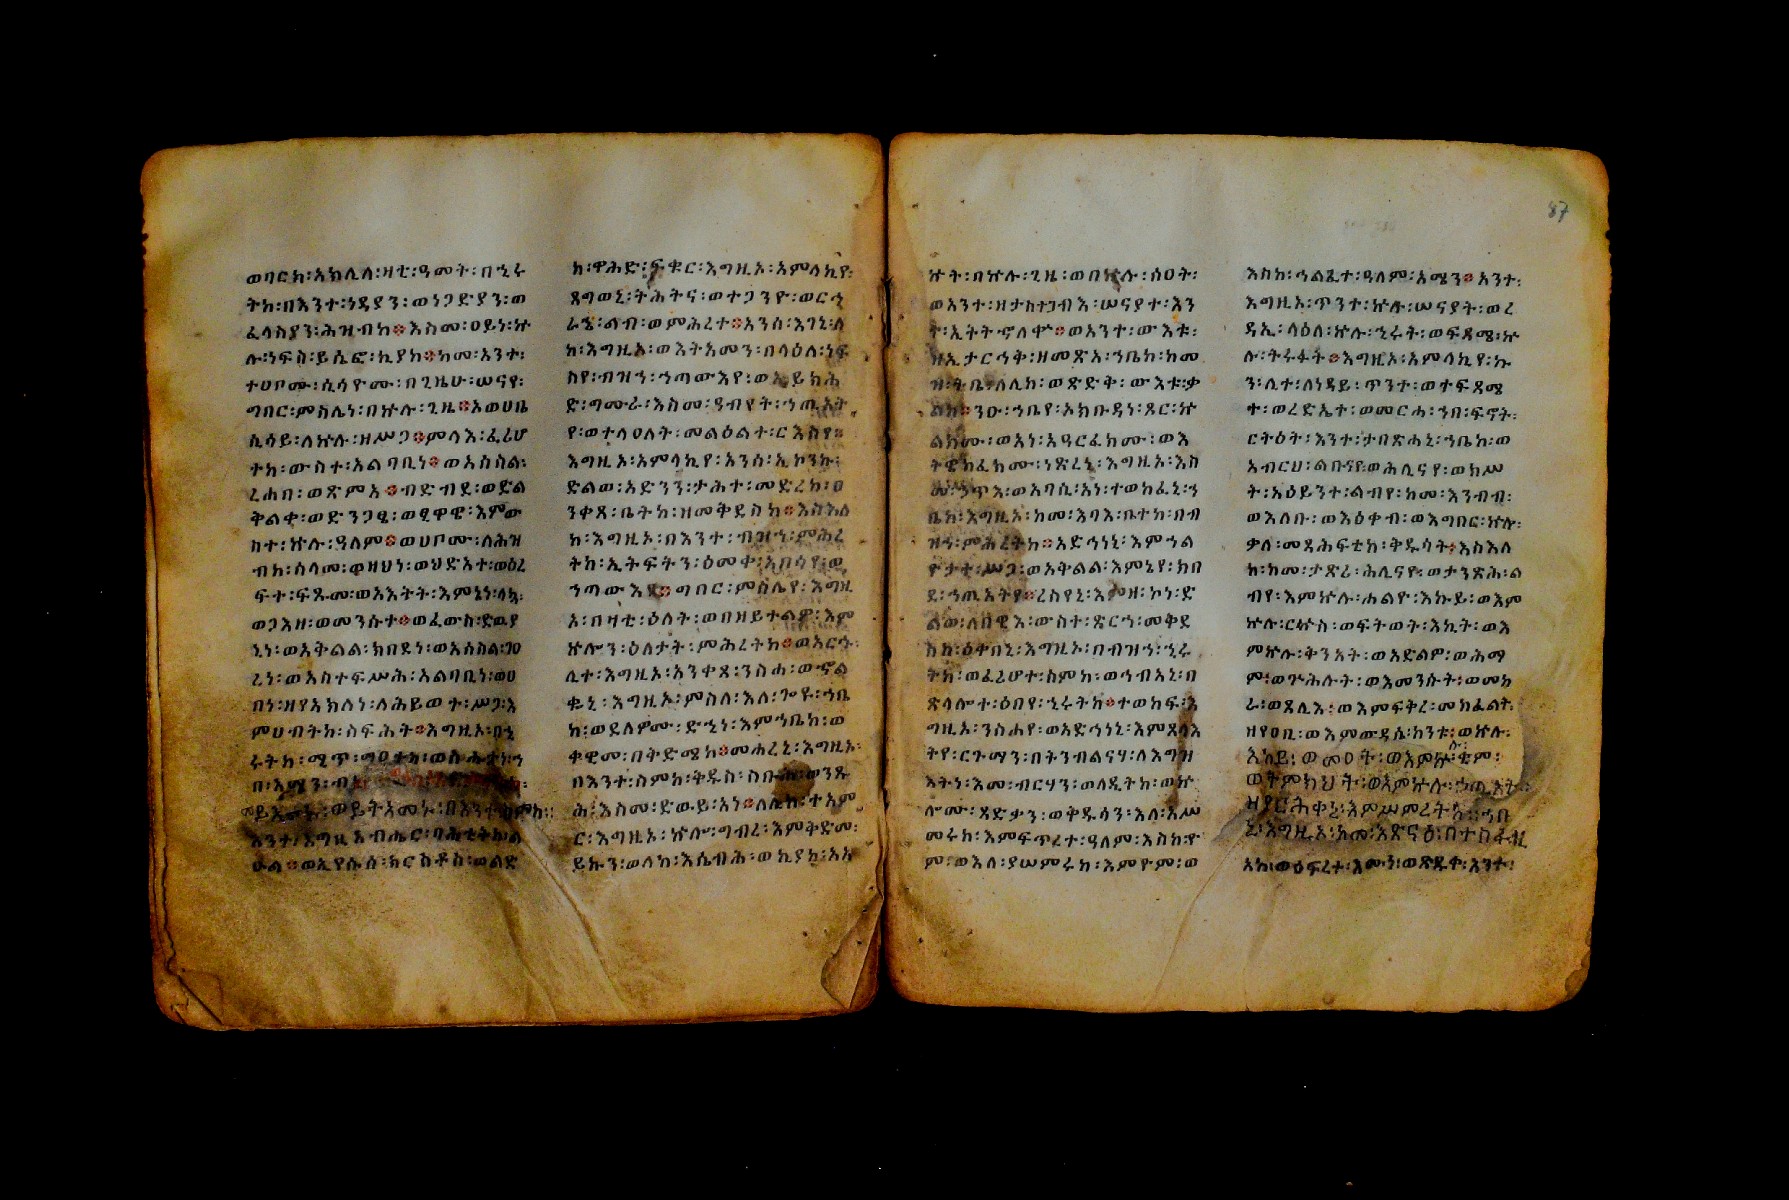 ወባርክ፡አክሊለ፡ዛቲ፡ዓመት፡በኂሩ
ትከ፡በእንተ፡ነዳያን፡ወነጋድያን፡ወ
ፈላስያን፡ሕዝብከ፨እስመ፡ዐይነ፡ኵ
ሉ፡ነፍስ፡ይሴፎ፡ኪያከ፨ከመ፡አንተ፡
ተሀቦሙ፡ሲሳዮሙ፡በጊዜሁ፡ሠናየ፡
ግበር፡ምስሌነ፡በኵሉ፡ጊዜ፨አወሀቤ
ሲሳይ፡ለኵሉ፡ዘሥጋ፨ምላእ፡ፈሪሆ
ተከ፡ውስተ፡አልባቢነ፨ወአስስል፡
ረሐበ፡ወጽምአ፨ብድብደ፡ወድል
ቅልቀ፡ወድንጋፄ፡ወፄዋዌ፡እምው
ስተ፡ኵሉ፡ዓለም፨ወሀቦሙ፡ለሕዝ
ብከ፡ሰላመ፡ወዛህነ፡ወህድአተ፡ወዕረ
ፍተ፡ፍጹመ፡ወአእትት፡እምኔነ፡
ወጋእዘ፡ወመንሱተ፨ወፈውስ፡ድዉያ
ኒነ፡ወአቅልል፡ክበደነ፡ወአሰስል፡
ረነ፡ወአስተፍሥሕ፡አልባቢነ፡ወሀ
በነ፡ዘየአክለነ፡ለሕይወተ፡ሥጋ፡እ
ምሀብትከ፡ስፍሕት፨እግዚኦ፡በኂ
እንተ፡እግዚአብሔር፡ባሕቲትከ፡ል
ዑል፡ወኢየሱስ፡ክርስቶስ፡ወልድ
ከ፡ዋሕድ፡ፍቁር፡እግዚኦ፡አምላኪየ፡
ጸግወኒ፡ትሕትና፡ወተጋንዮ፡ወርኅ
ራኄ፡ልብ፡ወምሕረተ፨አንሰ፡እገኒ፡ለ
ከ፡እግዚኦ፡ወእትአመን፡በላዕለ፡ነፍ
ስየ፡ብዝኀ፡ኀጣውእየ፡ወኢይክሕ
ድ፡ግሙራ፡እስመ፡ዓብየት፡ኀጢአት
የ፡ወተላዐለት፡መልዕልተ፡ርእስየ።
እግዚኦ፡አምላኪየ፡አንሰ፡ኢኮንኩ፡
ድልወ፡አድንን፡ታሕተ፡መድረከ፡ዐ
ንቀጸ፡ቤትከ፡ዘመቅደስከ፨እስእለ
ከ፡እግዚኦ፡በእንተ፡ብዝኀ፡ምሕረ
ትከ፡ኢትፍትን፡ዕመቀ፡አበሳየ፡ወ
ኀጣውእየ፨ግበር፡ምስሌየ፡እግዚ
ኦ፡በዛቲ፡ዕለት፡ወበዘይተልዎ፡እም
ኵሎን፡ዕለታት፡ምሕረትከ፨ወአርኁ፡
ሊተ፡እግዚኦ፡አንቀጸ፡ንስሐ፡ወኆል
ቁኒ፡እግዚኦ፡ምስለ፡እለ፡ጐዩ፡ኀቤ
ከ፡ወደለዎሙ፡ድኂነ፡እምኀቤከ፡ወ
ቀዊመ፡በቅድሜከ፨መሐረኒ፡እግዚኦ፡
በእንተ፡ስምከ፡ቅዱስ፡ስቡሕ፡ወንጹ
ሕ፡እስመ፡ድውይ፡አነ፨ለሊከ፡ተአም
ር፡እግዚኦ፡ኵሎ፡ግብረ፡እምቅድመ፡
ይኩን፡ወለከ፡እሴብሕ፡ወኪያከ፡አአ
ኵት፡በኵሉ፡ጊዜ፡ወበኵሉ፡ሰዐት፡
ወአንተ፡ዘታስተጋብእ፡ሠናያተ፡እን
ወአንተ፡ውእቱ፡
ዘኢታርኅቅ፡ዘመጽአ፡ኀቤከ፡ከመ
ዝ፡ትቤ፡ለሊከ፡ወጽድቅ፡ውእቱ፡ቃ
ልከ፨ንዑ፡ኀቤየ፡ኦክቡዳነ፡ጾር፡ኵ
ልክሙ፡ወአነ፡አዓርፈክሙ፡ወእ
ነጽረኒ፡እግዚኦ፡እስ
ወአባሲ፡አነ፡ተወከፈኒ፡ኀ
ቤከ፡እግዚኦ፡ከመ፡እባእ፡ቤተከ፡በብ
ዝኀ፡ምሕረትከ፨አድኅነኒ፡እምኀል
ዮታተ፡ሥጋ፡ወአቅልል፡እምኔየ፡ክበ
ደ፡ኀጢአትየ፨ረስየኒ፡እምዘ፡ኮነ፡ድ
ውስተ፡ጽርኀ፡መቅደ
ስከ፡ዕቀበኒ፡እግዚኦ፡በብዝኀ፡ኂሩ
ትከ፡ወፈሪሆተ፡ስምከ፡ወኀብአኒ፡በ
ጽላሎተ፡ዕበየ፡ኂሩትከ፨ተወከፍ፡እ
ግዚኦ፡ንስሐየ፡ወአድኅነኒ፡እምጸላእ
ትየ፡ርጉማን፡በትንብልናሃ፡ለእግዝ
እትነ፡እመ፡ብርሃን፡ወላዲትከ፡ወኵ
ሎሙ፡ጻድቃን፡ወቅዱሳን፡እለ፡አሥ
መሩከ፡እምፍጥረተ፡ዓለም፡እስከ፡ዮ
ም፡ወእለ፡ያሠምሩከ፡እምዮም፡ወ
እስከ፡ኀልፈተ፡ዓለም፡አሜን፨አንተ፡
እግዚኦ፡ጥንተ፡ኵሉ፡ሠናያት፡ወረ
ዳኢ፡ላዕለ፡ኵሉ፡ኂሩት፡ወፍጻሜ፡ኵ
ሉ፡ትሩፋት፨እግዚኦ፡አምላኪየ፡ኩ
ን፡ሊተ፡ለነዳይ፡ጥንተ፡ወተፍጻሜ
ተ፡ወረድኤተ፡ወመርሐ፡ኀበ፡ፍኖት፡
ርትዕት፡እንተ፡ታበጽሐኒ፡ኀቤከ፡ወ
አብርህ፡ልቡናየ፡ወሕሊናየ፡ወክሥ
ት፡አዕይንተ፡ልብየ፡ከመ፡እንብብ፡
ወእለቡ፡ወእዕቀብ፡ወእግበር፡ኵሎ፡
ቃለ፡መጻሕፍቲከ፡ቅዱሳት፡እስእለ
ከ፡ከመ፡ታጽሪ፡ሕሊናየ፡ወታንጽሕ፡ል
ብየ፡እምኵሉ፡ሐልዮ፡እኩይ፡ወእም
ኵሉ፡ርኵስ፡ወፍትወት፡እኪት፡ወእ
ምኵሉ፡ቅንአት፡ወአድልዎ፡ወሕማ
ም፡ወጕሕሉት፡ወእመንሱት፡ወመከ
ራ፡ወጸሊእ፡ወእምፍቅረ፡መክፈልት፡
ዘየዐቢ፡ወእምውዳሴ፡ከንቱ፡ወኵሉ፡
እከይ፡ወመዐት፡ወእምኵሉ፡ቂም፡
ወትምክህት፡ወእምኵሉ፡ኃጢአት፡
ዘያርሕቀኒ፡እምሥምረትከ፡